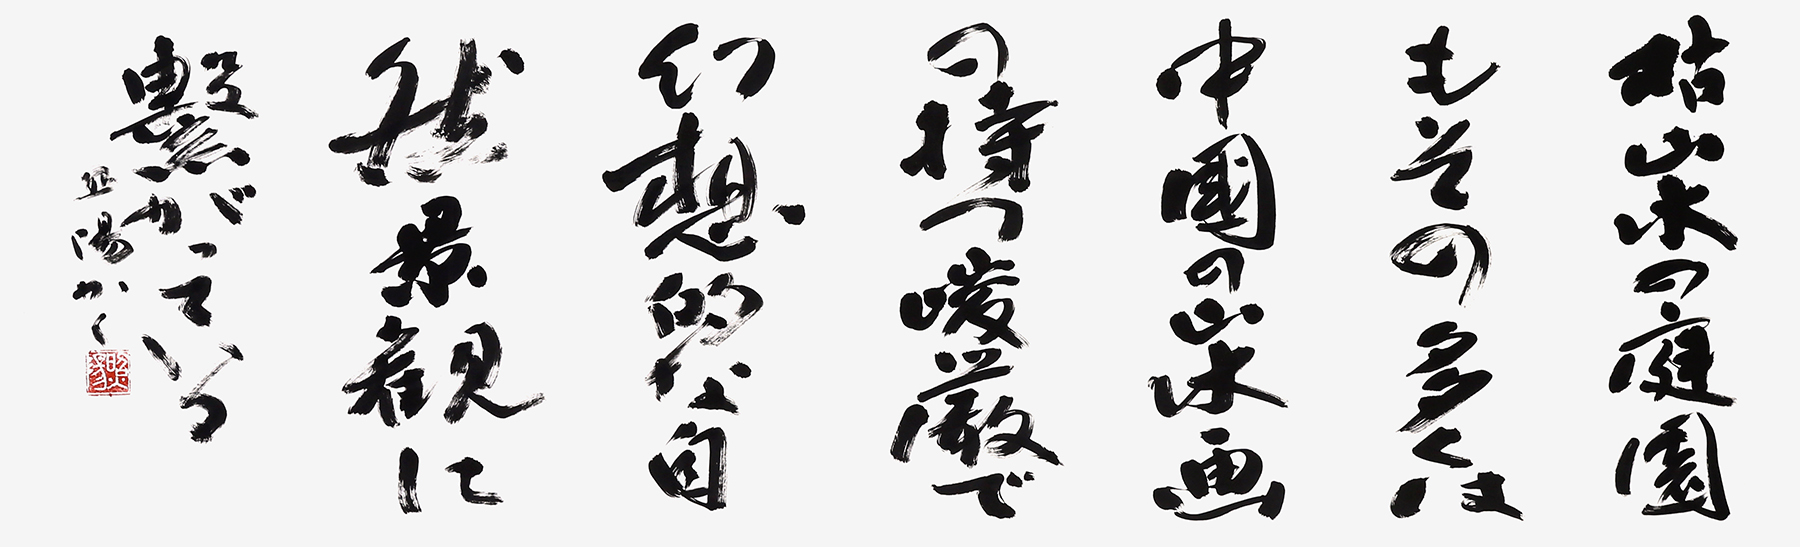 枯山水の庭園
もその多くは
中國の山水画
の持つ峻厳で
幻想的な自
然景観に
繋がっている
かく